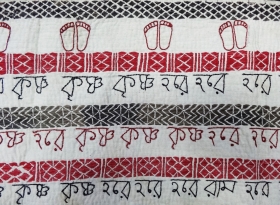 কৃষ্ণ কৃষ্ণ কৃষ্ণ হরে হরে
কৃষ্ণ হরে কৃষ্ণ কৃষ্ণ কৃষ্ণ হরে হরে
কৃষ্ণ কৃষ্ণ হরে হরে হরে রাম হরে